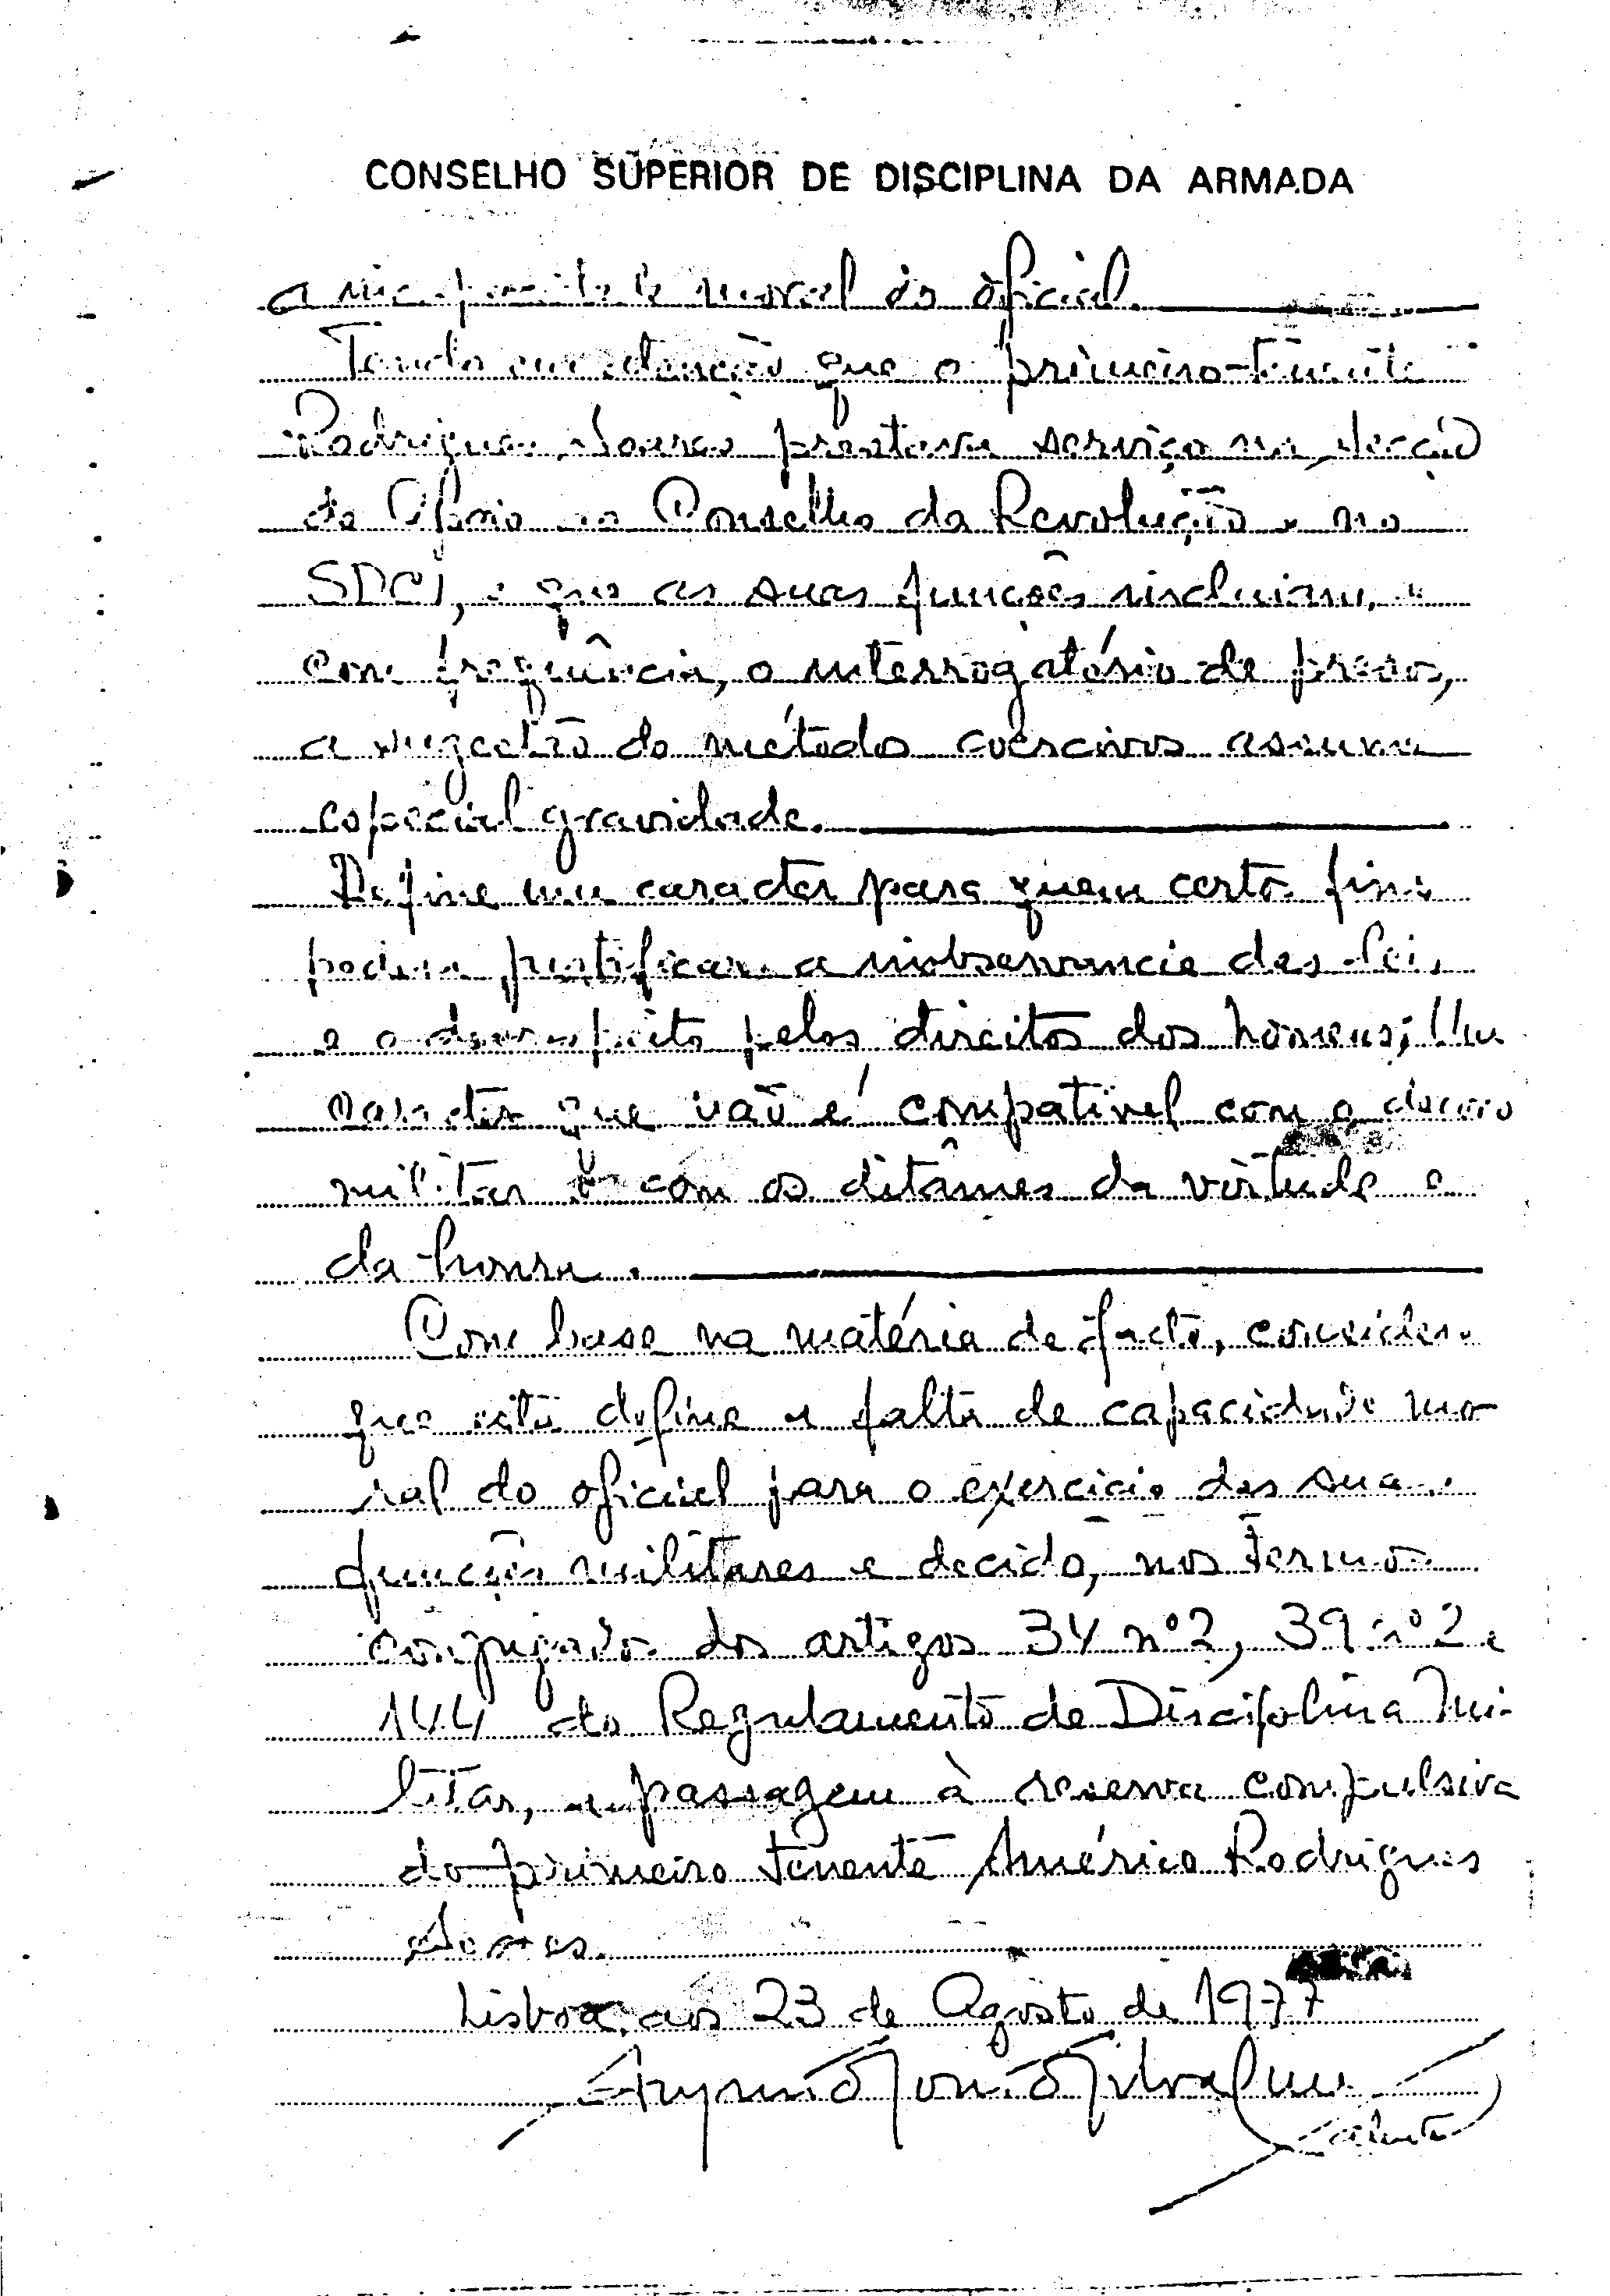 CONSELHO SUPERIOR DE DISCIPLINA DA ARMADA
a incapacidade moral do oficial.
Tendo em atenção que o primeiro-tenente
Rodrigues Soares prestava serviço na Secção
de Apoio ao Conselho da Revolução e no
SDCI, e que as suas funções incluiam,
com frequência, o interrogatório de presos,
a sugestão de métodos coercivos assume
especial gravidade.
Define um caracter para quem certos fins
podem justificar a inobservancia das leis
e o desrespeito pelos direitos dos homens; Um
caracter que não é compatível com o decoro
militar e com os ditâmes da virtude e
da honra.
Com base na matéria de facto, considero
que esta define a falta de capacidade mo-
ral do oficial para o exercício das suas
funções militares e decido, nos termos
conjugados dos artigos 34 nº2, 39 nº2 e
144 do Regulamento de Disciplina Mi-
litar, a passagem à reserva compulsiva
do primeiro tenente Américo Rodrigues
Soares.
Lisboa, aos 23 de Agosto de 1977